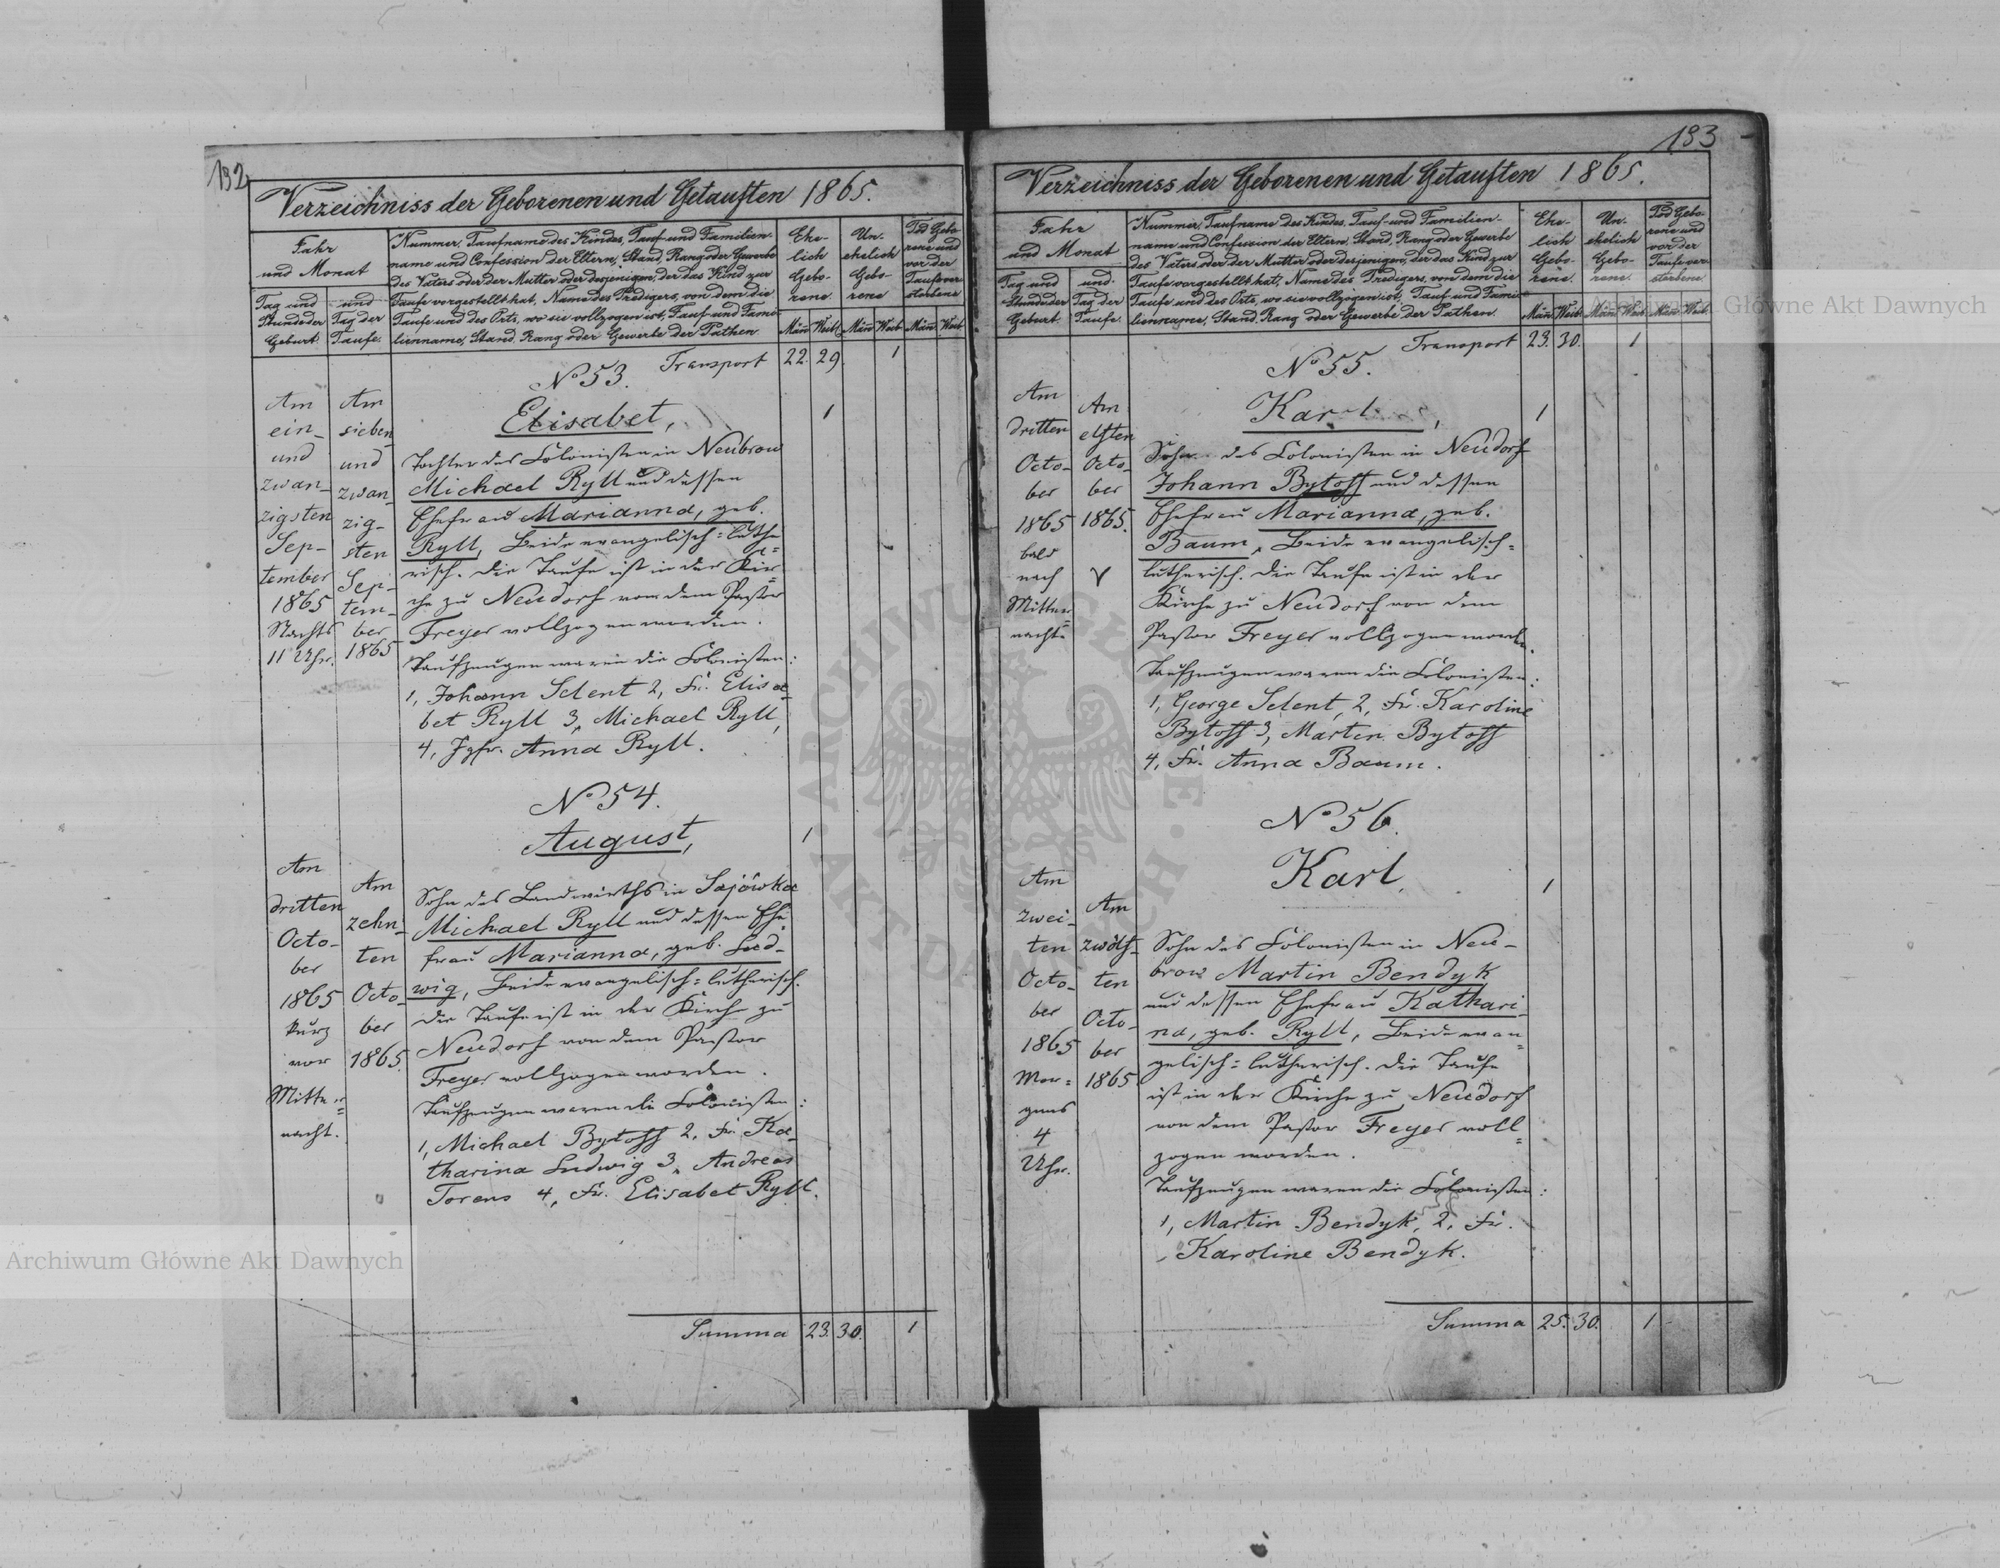 132
Verzeichniss der Geborenen und Getauften 1865.
Jahr
und Monat
Tag und
Stunde der
Geburt.
und
Tag der
Taufe.
Nummer, Taufname des Kindes, Tauf- und Familien-
name und Confession der Eltern, Stand, Rang oder Gewerbe
des Vaters oder der Mutter oder desjenigen, der das Kind zur
Taufe vorgestellt hat, Name des Predigers, von dem die
Taufe und des Orts, wo sie vollzogen ist, Tauf- und Fami-
lienname, Stand, Rang oder Gewerbe der Pathen.
Ehe-
lich
Gebo-
rene.
Un-
ehelich
Gebo-
rene
Tod Gebo-
rene und
vor der
Taufe ver-
storbene.
Män. Weib. Män. Weib. Män. Weib.
Transport 22. 29. 1
No 53.
Elisabet, 1
Am
ein-
und
zwan-
zigsten
Sep-
tember
1865
Nachts
11 Uhr.
Am
sieben
und
zwan-
zig-
sten
Sep-
tem-
ber
1865
Tochter des Colonisten in Neubrow
Michael Ryll und dessen
Ehefrau Marianna, geb.
Ryll, Beide evangelisch=luthe=
risch. Die Taufe ist in der Kir=
che zu Neudorf von dem Pastor
Freyer vollzogen worden.
Taufzeugen waren die Colonisten:
1, Johann Selent 2, Fr. Elisa-
bet Ryll 3, Michael Ryll,
4, Jgfr. Anna Ryll.
No 54.
August, 1
Am
dritten
Octo-
ber
1865
kurz
vor
Mitter=
nacht.
Am
zehn-
ten
Octo-
ber
1865.
Sohn des Landwirths in Sajówka
Michael Ryll und dessen Ehe-
frau Marianna, geb. Lud-
wig, Beide evangelisch=lutherisch.
Die Taufe ist in der Kirche zu
Neudorf von dem Pastor
Freyer vollzogen worden.
Taufzeugen waren die Colonisten:
1, Michael Bytoff 2, Fr. Ka-
tharina Ludwig 3, Andreas
Torens 4, Fr. Elisabet Ryll.
Summa 23. 30. 1
133
Verzeichniss der Geborenen und Getauften 1865.
Jahr
und Monat
Tag und
Stunde der
Geburt.
und
Tag der
Taufe.
Nummer, Taufname des Kindes, Tauf- und Familien-
name und Confession der Eltern, Stand, Rang oder Gewerbe
des Vaters oder der Mutter oder desjenigen, der das Kind zur
Taufe vorgestellt hat, Name des Predigers, von dem die
Taufe und des Orts, wo sie vollzogen ist, Tauf- und Fami-
lienname, Stand, Rang oder Gewerbe der Pathen.
Ehe-
lich
Gebo-
rene.
Un-
ehelich
Gebo-
rene.
Tod Gebo-
rene und
vor der
Taufe ver-
storbene.
Män. Weib. Män. Weib. Män. Weib.
Transport 23. 30. 1
No 55.
Karl, 1
Am
dritten
Octo-
ber
1865
bald
nach
Mitter=
nacht.
Am
elften
Octo-
ber
1865.
Sohn des Colonisten in Neudorf
Johann Bytoff und dessen
Ehefrau Marianna, geb.
Baum, Beide evangelisch=
lutherisch. Die Taufe ist in der
Kirche zu Neudorf von dem
Pastor Freyer vollzogen worden.
Taufzeugen waren die Colonisten:
1, George Selent, 2, Fr. Karoline
Bytoff 3, Martin Bytoff
4, Fr. Anna Baum.
No 56.
Karl, 1
Am
zwei-
ten
Octo-
ber
1865
Mor=
gens
4
Uhr.
Am
zwölf-
ten
Octo-
ber
1865
Sohn des Colonisten in Neu-
brow Martin Bendyk
und dessen Ehefrau Kathari-
na, geb. Ryll, Beide evan=
gelisch=lutherisch. Die Taufe
ist in der Kirche zu Neudorf
von dem Pastor Freyer voll=
zogen worden.
Taufzeugen waren die Colonisten:
1, Martin Bendyk, 2, Fr.
Karoline Bendyk.
Summa 25. 30. 1
Archiwum Główne Akt Dawnych
Archiwum Główne Akt Dawnych
ARCHIWUM GŁÓWNE · AKT DAWNYCH ·